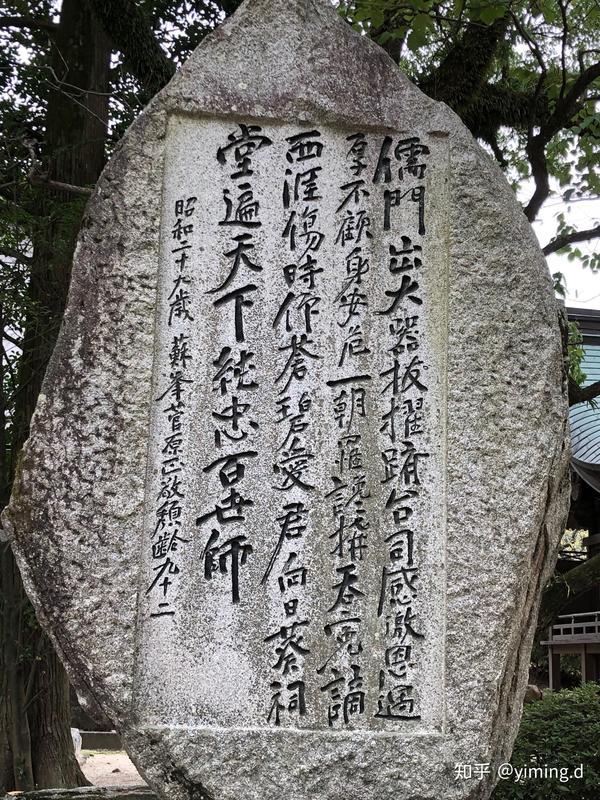 儒門出大器拔擢躋台司感激恩遇
厚不顧身安危一朝罹讒構吞冤謫
西涯傷時仰蒼碧愛君向日葵祠
堂遍天下純忠百世師
昭和二十九歳 蘇峯菅原正敬頽齡九十二
知乎 @yiming.d